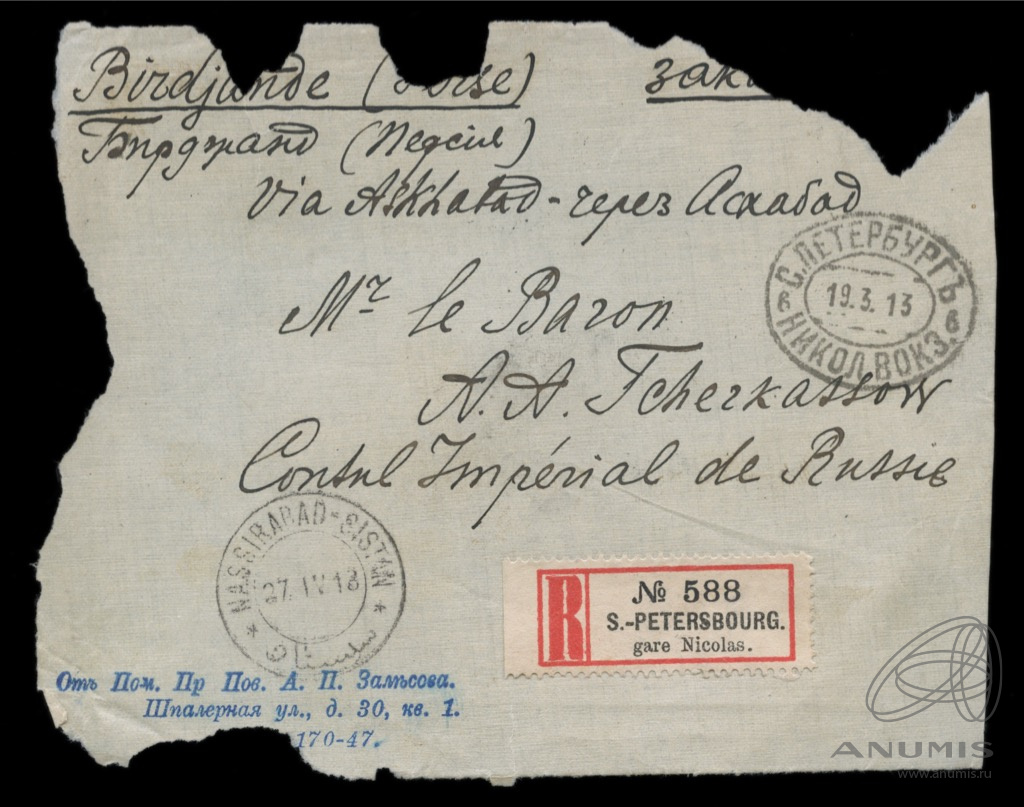 Birdjande (Perse)
Бирджанд (Педсія)
Via Askhabad - через Асхабад
Mr le Baron
A. A. Tcherkassow
Consul Impérial de Russie
С.ПЕТЕРБУРГЪ
19.3.13
6 6
НИКОЛ.ВОКЗ.
NASSIRABAD-SISTAN
27.IV.13
R
№ 588
S.-PETERSBOURG.
gare Nicolas.
Отъ Пом. Пр Пов. А. П. Залѣсова.
Шпалерная ул., д. 30, кв. 1.
170-47.
ANUMIS
www.anumis.ru